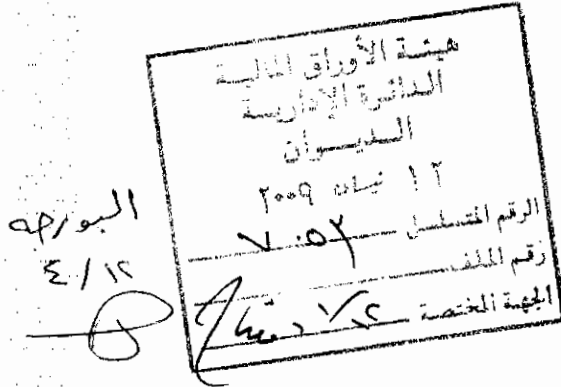 هيئة الأوراق المالية
الدائرة الإدارية
الديوان
١٢ نيسان ٢٠٠٩
الرقم المتسلسل ٧٠٥٢
رقم الملف
الجهة المختصة
البورصه
٤/١٢